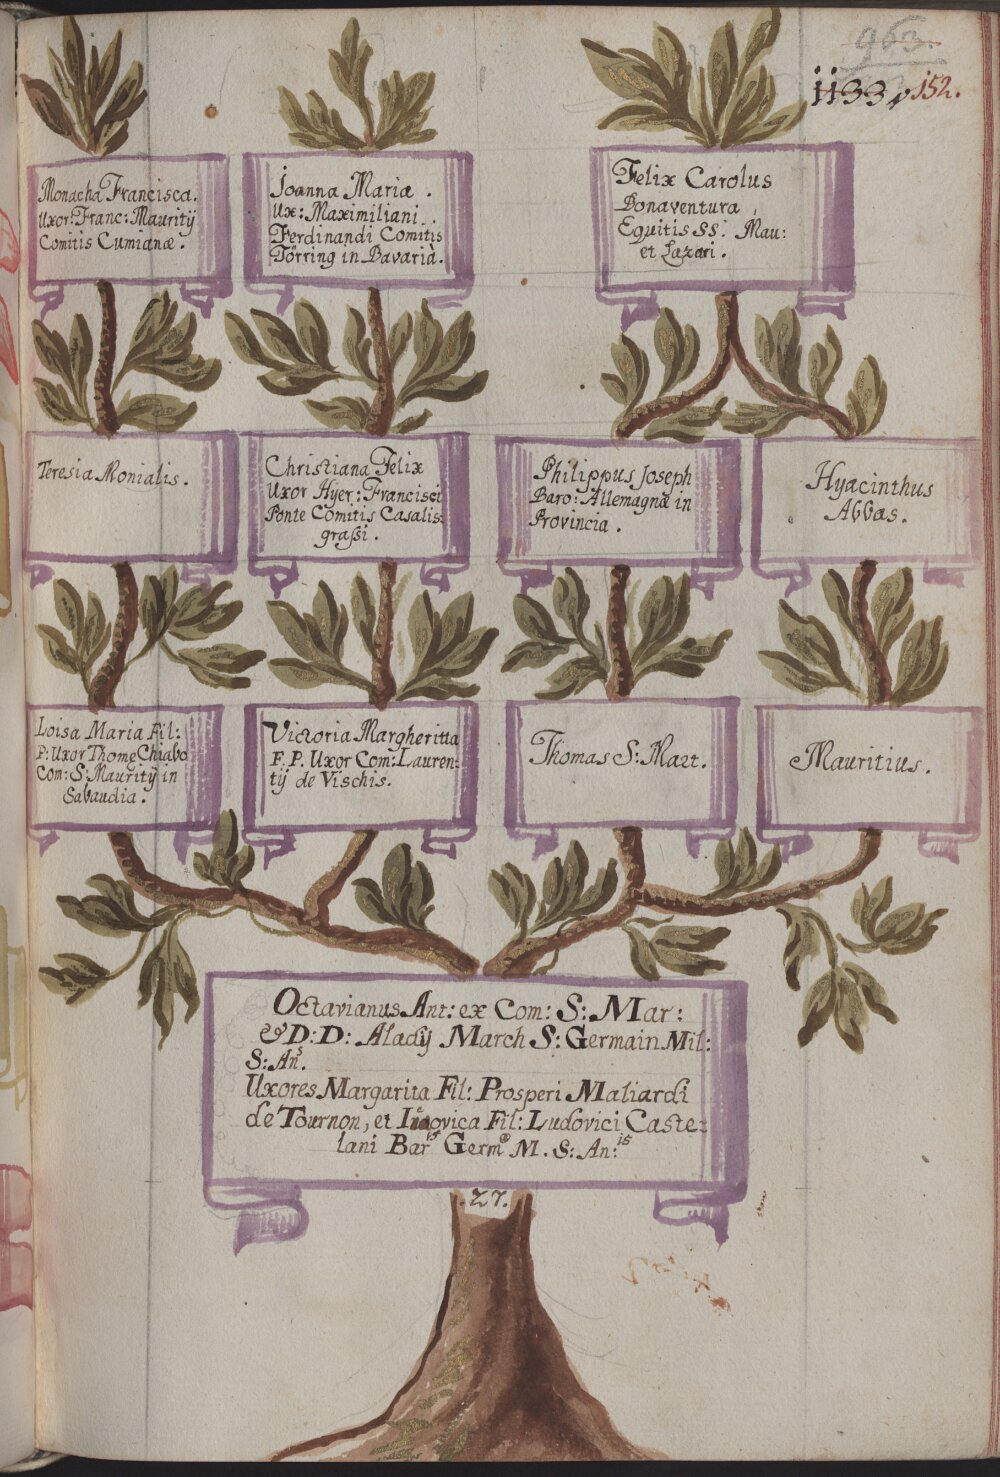 963.
1133 p 152.
Monacha Francisca.
Uxor: Franc: Mauritij
Comitis Cumianæ.
Joanna Mariæ.
Ux: Maximiliani.
Ferdinandi Comitis
Törring in Bavarià.
Felix Carolus
Bonaventura,
Equitis SS: Mau:
et Lazari.
Teresia Monialis.
Christiana Felix
Uxor Hyer: Francisci
Ponte Comitis Casalis:
grassi.
Philippus Joseph
Baro: Allemagnæ in
Provincia.
Hyacinthus
Abbas.
Loisa Maria Fil:
P: Uxor Thomę Chiabo
Com: S: Maurity in
Sabaudia.
Victoria Margheritta
F. P. Uxor Com: Lauren:
tij de Vischis.
Thomas S: Mart.
Mauritius.
Octavianus Ant: ex Com: S: Mar:
& D: D: Aladij March S: Germain Mil:
S: An.s
Uxores Margarita Fil: Prosperi Maliardi
de Tournon, et Ludovica Fil: Ludovici Caste:
lani Bar is Germ æ M. S: An: is
.27.